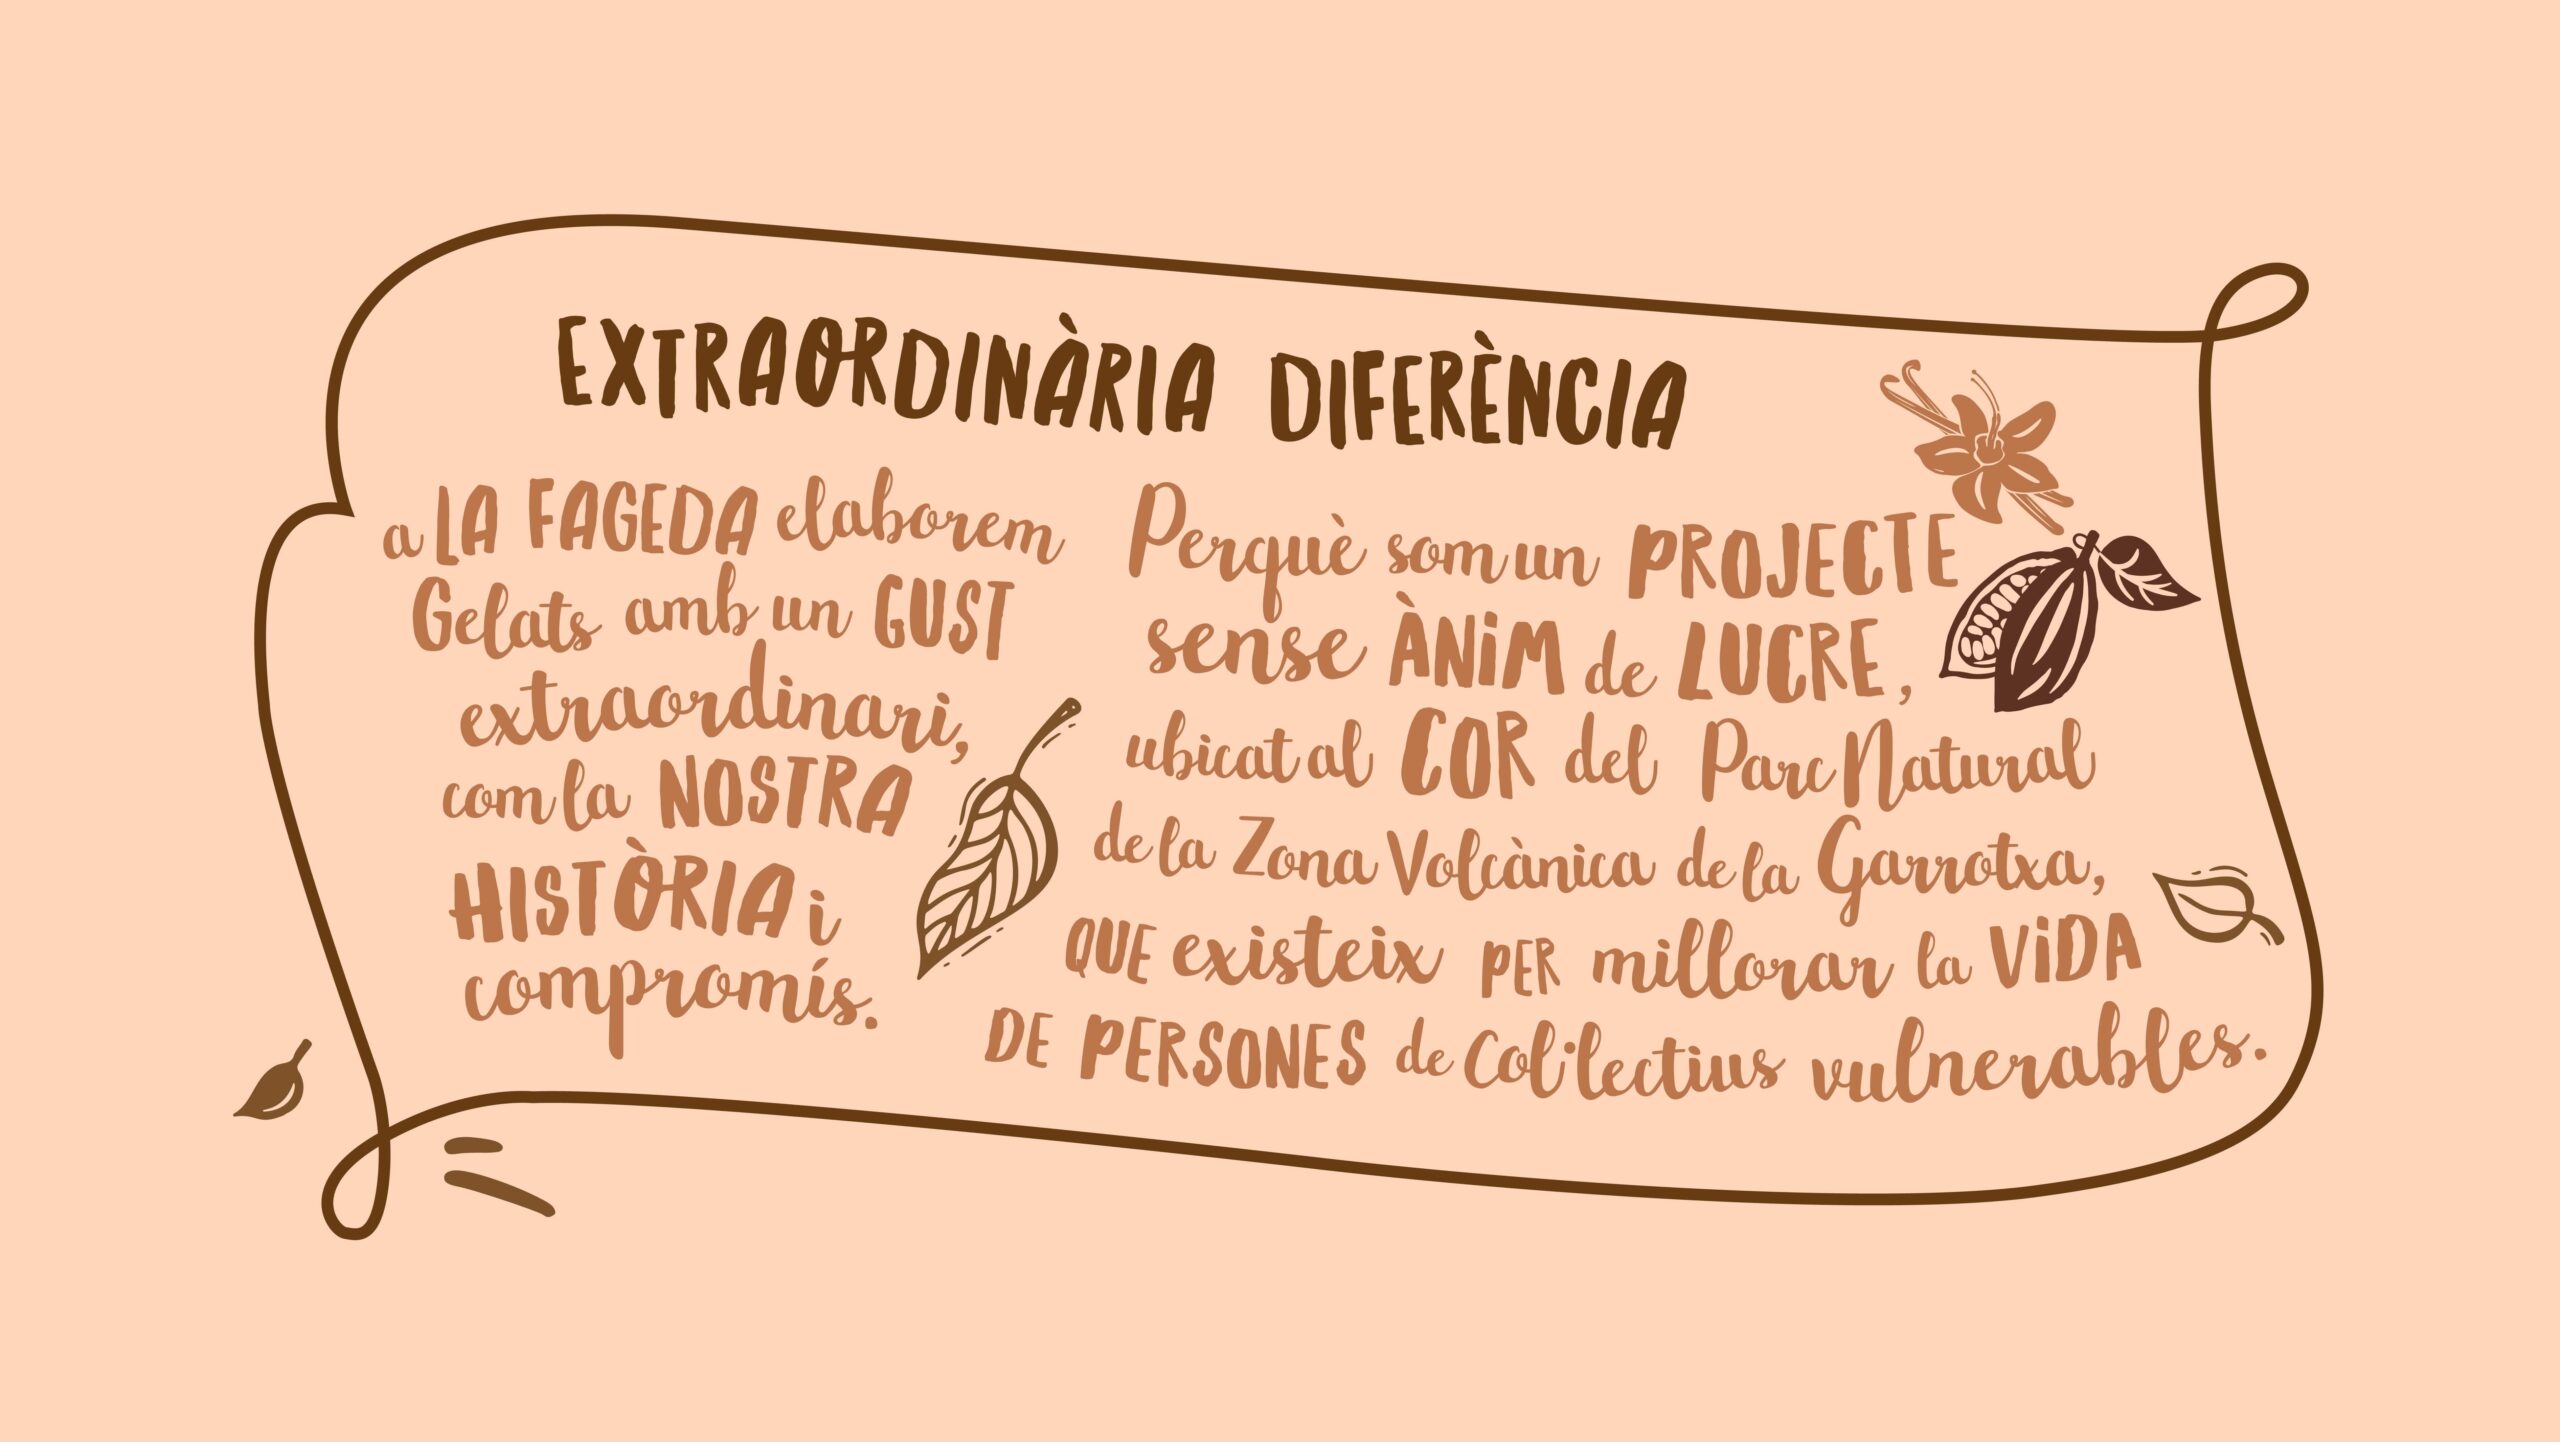 EXTRAORDINÀRIA DIFERÈNCIA
a LA FAGEDA elaborem
Gelats amb un GUST
extraordinari,
com la NOSTRA
HISTÒRIA i
compromís.
Perquè som un PROJECTE
sense ÀNiM de LUCRE,
ubicat al COR del Parc Natural
de la Zona Volcànica de la Garrotxa,
QUE existeix PER millorar la ViDA
DE PERSONES de Col·lectius vulnerables.